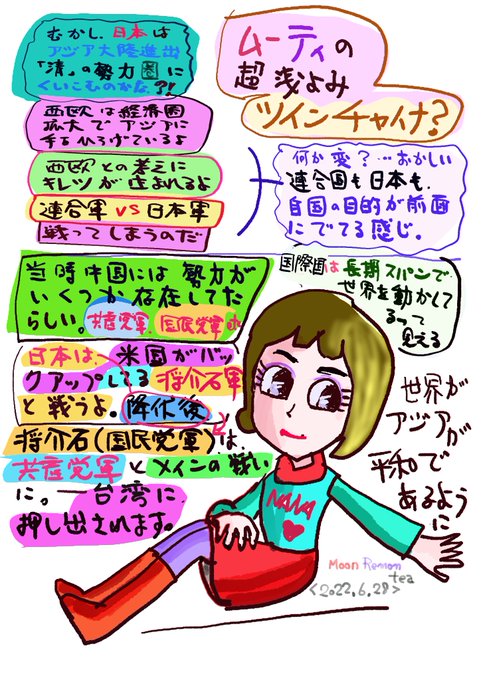 ムーティの
超浅よみ
ツインチャイナ?
むかし、日本は
アジア大陸進出
「清」の勢力圏に
くいこむのかな?!
西欧は経済圏
拡大でアジアに
手をひろげているよ
西欧との考えに
キレツが生まれるよ
連合軍 VS 日本軍
戦ってしまうのだ
何か変?…おかしい
連合国も日本も、
自国の目的が前面
にでてる感じ。
当時中国には勢力が
いくつか存在してた
らしい。共産党軍、国民党軍
国際国は長期スパンで
世界を動かして
るって
見える
日本は、米国がバッ
クアップしてる蒋介石軍
と戦うよ。降伏後、
蒋介石(国民党軍)は、
共産党軍とメインの戦い
に。―台湾に
押し出されます。
世界が
アジアが
平和で
あるように
NANA
Moon Remon
tea
<2022.6.28>